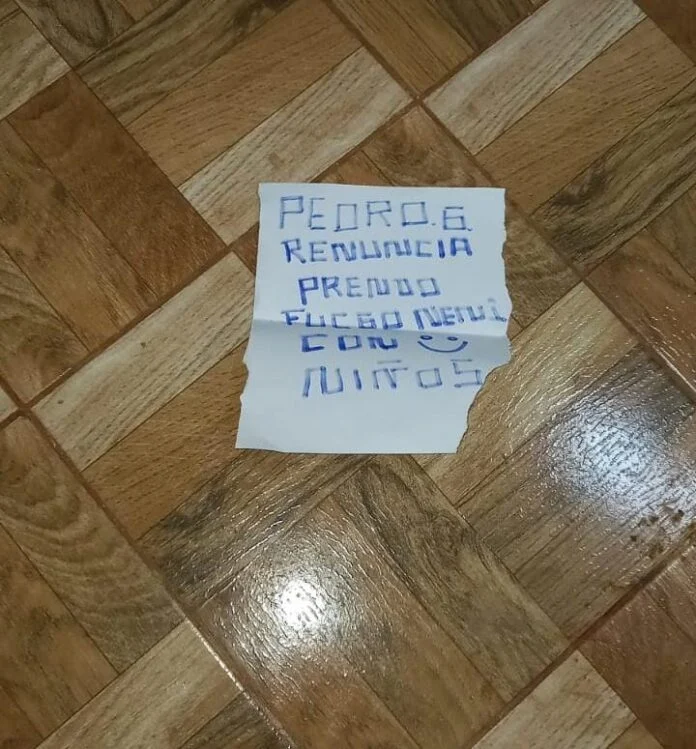 PEDRO.G.
RENUNCIA
PRENDO
FUEGO NENI
CON
NIÑOS